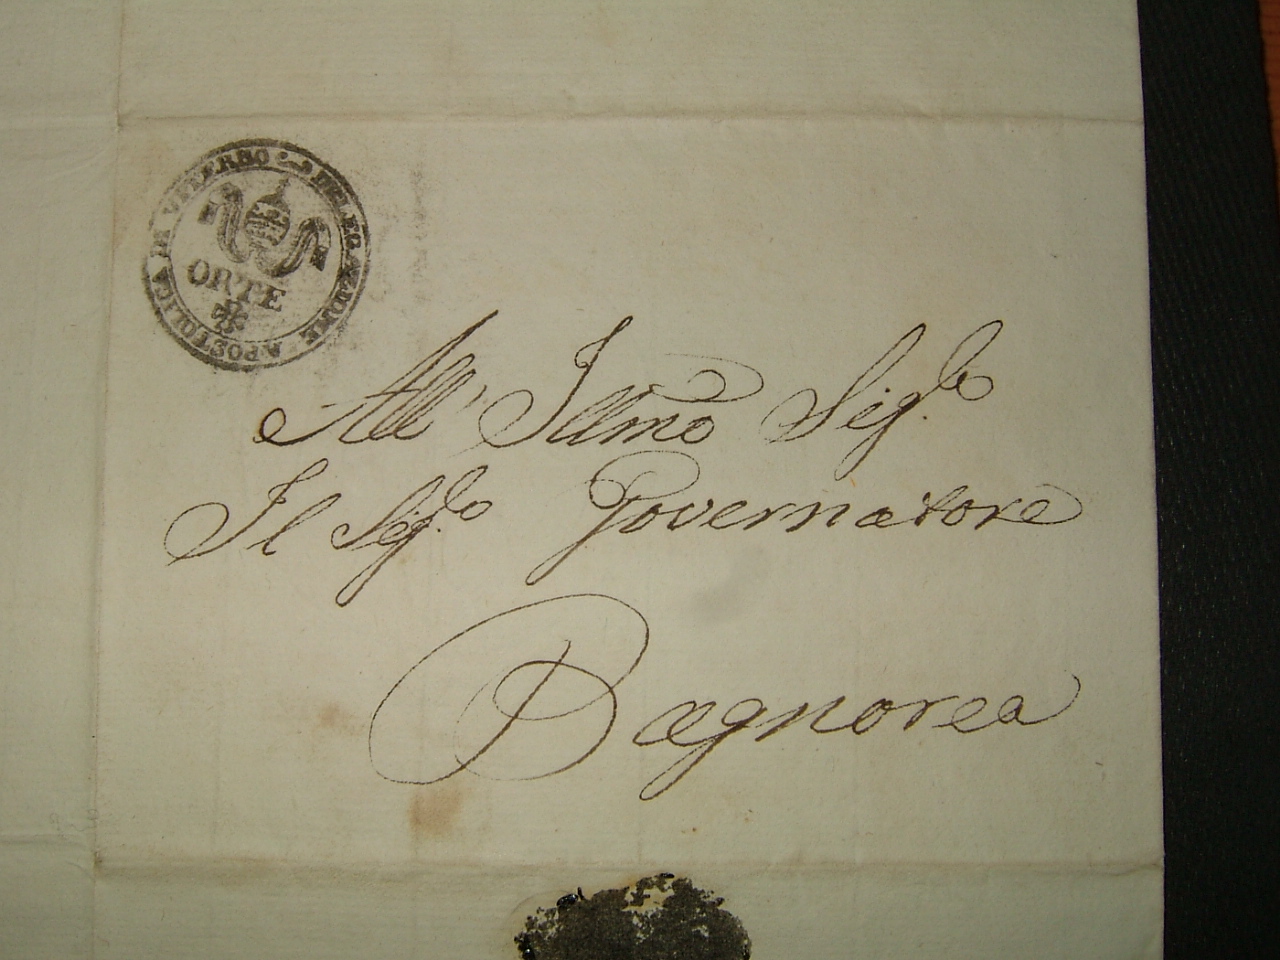 DELEGAZIONE APOSTOLICA DI VITERBO
ORTE
All' Illmo Sigre
Il Sigre Governatore
Bagnorea